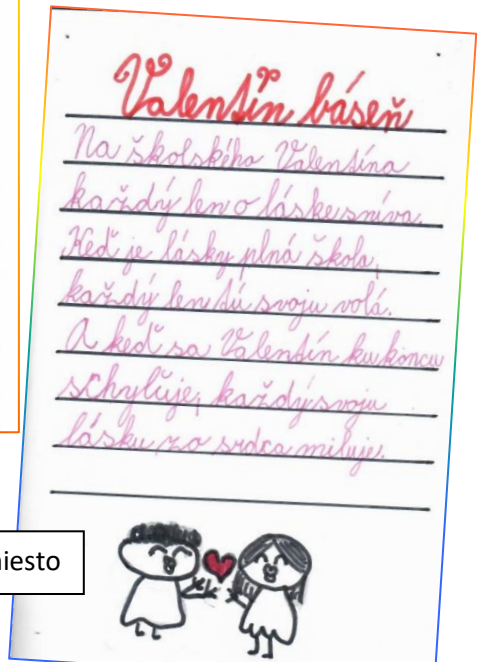 Valentín báseň
Na školského Valentína
každý len o láske sníva.
Keď je lásky plná škola,
každý len tú svoju volá.
A keď sa Valentín ku koncu
schyľuje, každý svoju
lásku zo srdca miluje.
iesto